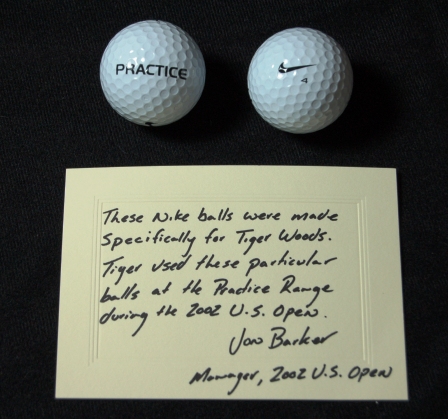 PRACTICE
4
These Nike balls were made
specifically for Tiger Woods.
Tiger used these particular
balls at the Practice Range
during the 2002 U.S. Open.
Jon Barker
Manager, 2002 U.S. Open